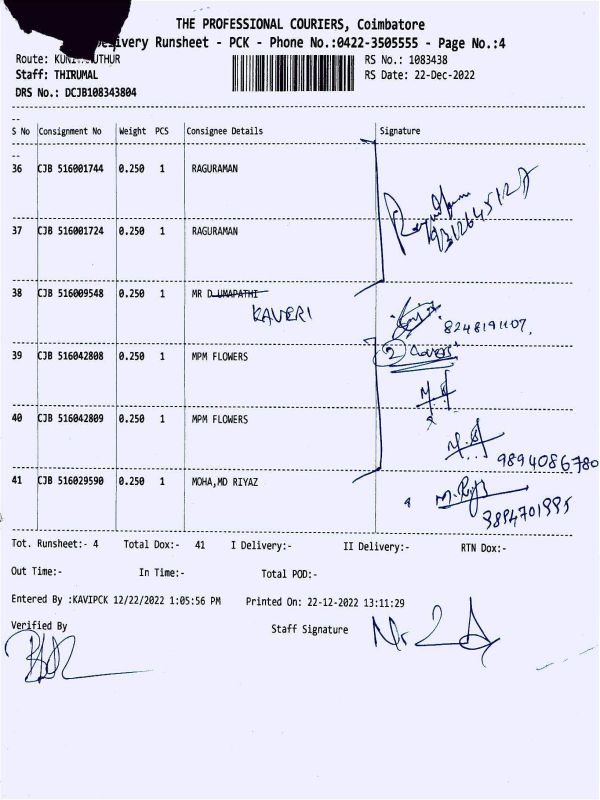 THE PROFESSIONAL COURIERS, Coimbatore
Delivery Runsheet - PCK - Phone No.:0422-3505555 - Page No.:4
Route: KUNI UTHUR
RS No.: 1083438
Staff: THIRUMAL
RS Date: 22-Dec-2022
DRS No.: DCJB108343804
S No Consignment No Weight PCS Consignee Details Signature
36 CJB 516001744 0.250 1 RAGURAMAN
37 CJB 516001724 0.250 1 RAGURAMAN
38 CJB 516009548 0.250 1 MR D UMAPATHI
KAVERI
8248191107.
39 CJB 516042808 0.250 1 MPM FLOWERS
2 Covers
40 CJB 516042809 0.250 1 MPM FLOWERS
9894086780
41 CJB 516029590 0.250 1 MOHA,MD RIYAZ
Tot. Runsheet:- 4 Total Dox:- 41 I Delivery:- II Delivery:- RTN Dox:-
Out Time:- In Time:- Total POD:-
Entered By :KAVIPCK 12/22/2022 1:05:56 PM Printed On: 22-12-2022 13:11:29
Verified By Staff Signature